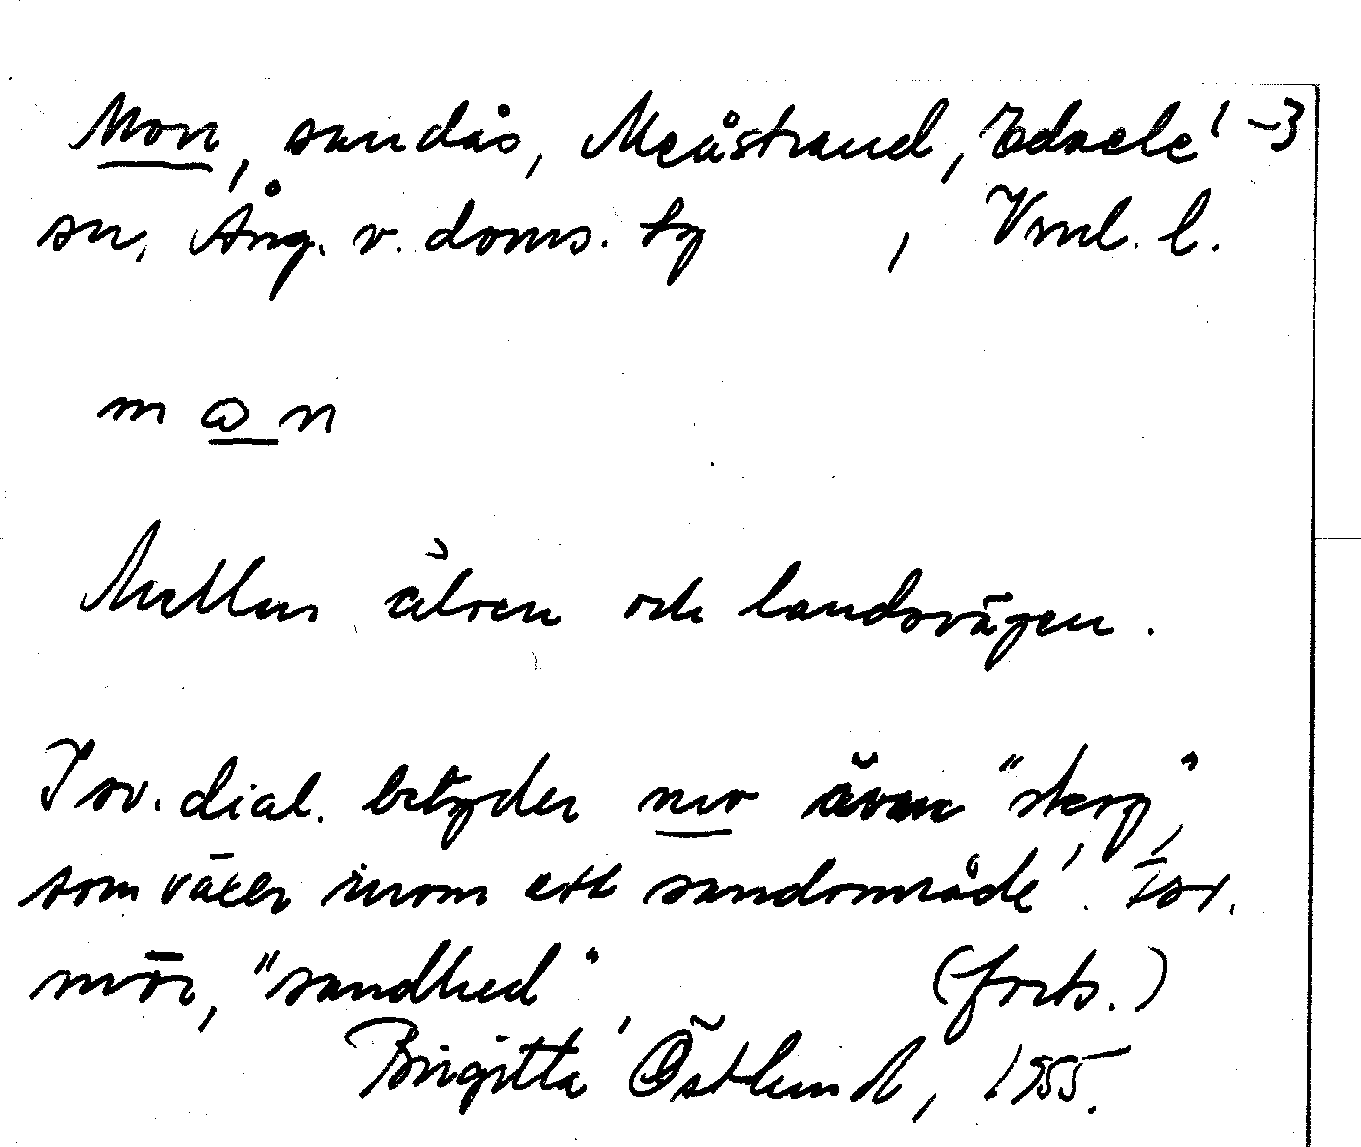 Mon, sandås, Meåstrand, Edsele -3
sn, Ång. v. doms. tg , Vml. l.
m ω n
Mellan älven och landsvägen.
I sv. dial. betyder mo även "skog",
som växer inom ett sandområde'. Isv.
mōr, "sandhed". (forts.)
Birgitta Östlund, 1955.